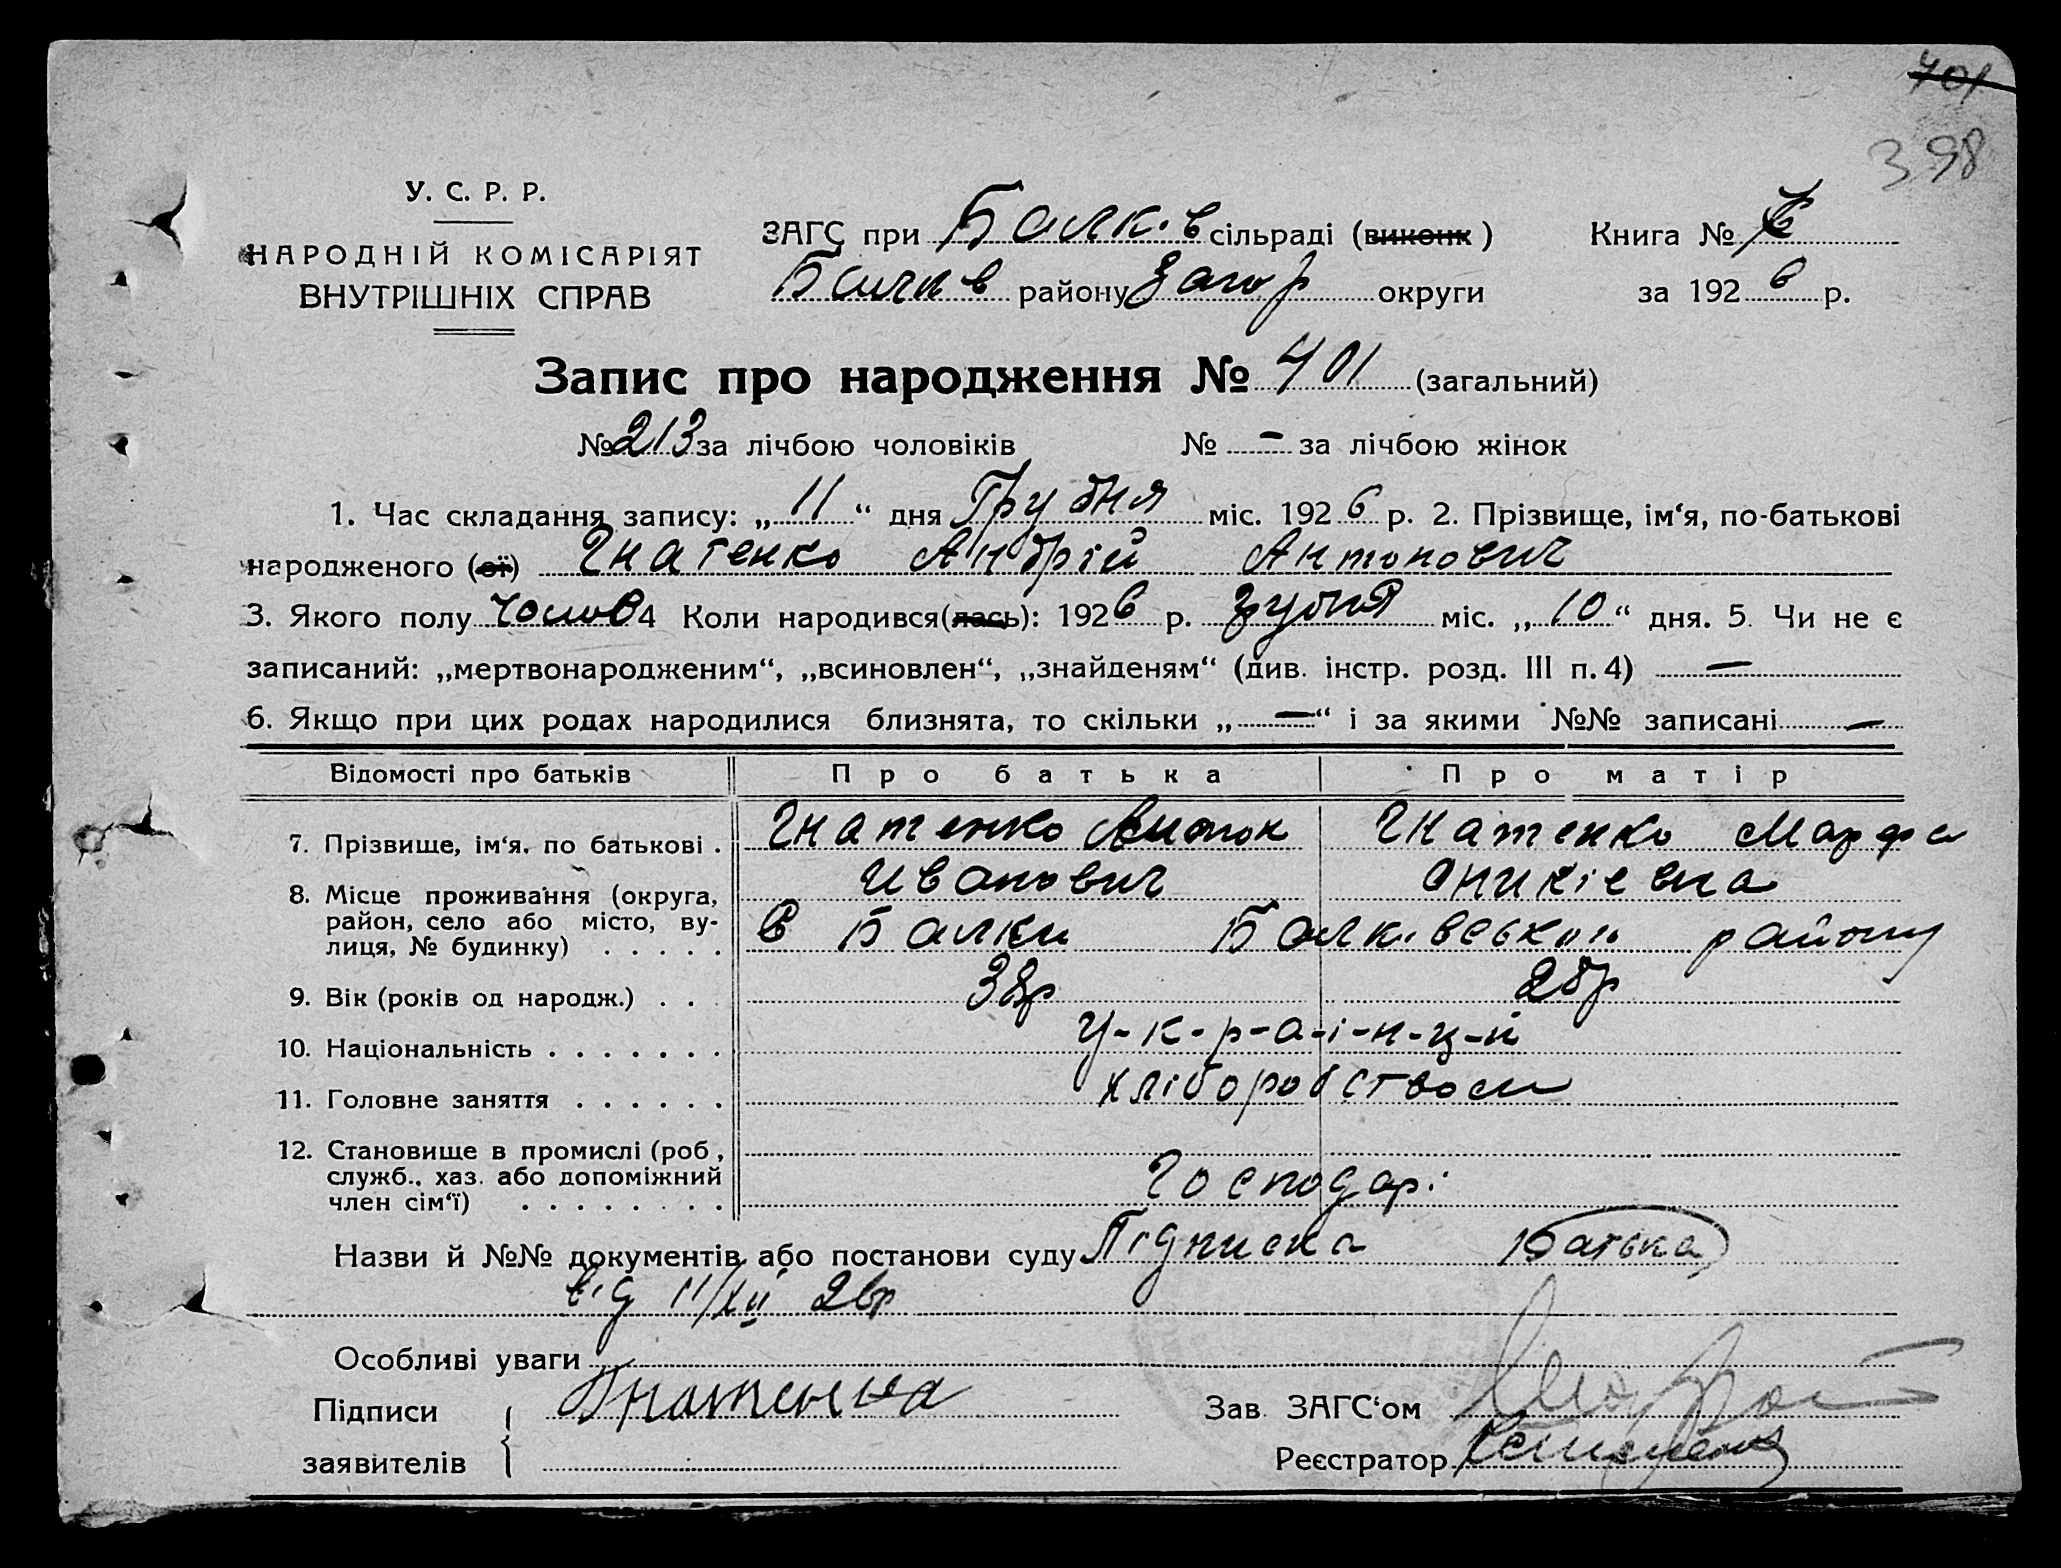 401
398
У. С. Р. Р.
НАРОДНІЙ КОМІСАРІЯТ
ВНУТРІШНІХ СПРАВ
ЗАГС при Балків сільраді (виконк ) Книга №
Балків району Запор округи за 1926 р.
Запис про народження № 401 (загальний)
№ 213 за лічбою чоловіків № – за лічбою жінок
1. Час складання запису: „ 11 “ дня Грудня міс. 1926 р. 2. Прізвище, ім‘я, по-батькові
народженого (ої) Гнатенко Андрій Антонович
3. Якого полу чолов 4 Коли народився(лась): 1926 р. грудня міс. „ 10 “ дня. 5. Чи не є
записаний: „мертвонародженим“, „всиновлен“, „знайденям“ (див. інстр. розд. III п. 4) —
6. Якщо при цих родах народилися близнята, то скільки „ — “ і за якими №№ записані —
Відомості про батьків Про батька Про матір
7. Прізвище, ім‘я, по батькові . Гнатенко Антон Гнатенко Марфа
Иванович Оникіевна
8. Місце проживання (округа,
район, село або місто, ву-
лиця, № будинку) . . . . . В Балки Балківського району
9. Вік (років од народж.) . . 38р 26р
10. Національність . . . . . . . у-к-р-а-ї-н-ц-и
11. Головне заняття . . . . . . хліборобством
12. Становище в промислі (роб.,
служб., хаз. або допоміжний
член сім‘ї) . . . . . . . . Господарі
Назви й №№ документів або постанови суду Підписка Батька
від 11/XII 26р
Особливі уваги
Підписи Гнатенка Зав. ЗАГС‘ом
заявителів Реєстратор